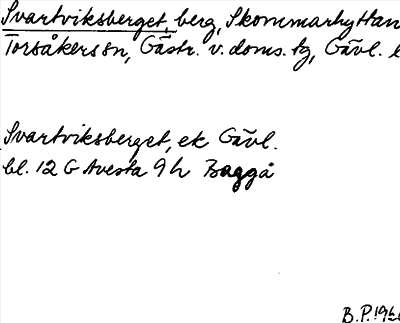 Svartviksberget, berg, Skommarhyttan
Torsåkers sn, Gästr. v. doms. tg, Gävl. l
Svartviksberget, ek Gävl.
bl. 12 G Avesta 9 h Baggå
B.P. 196